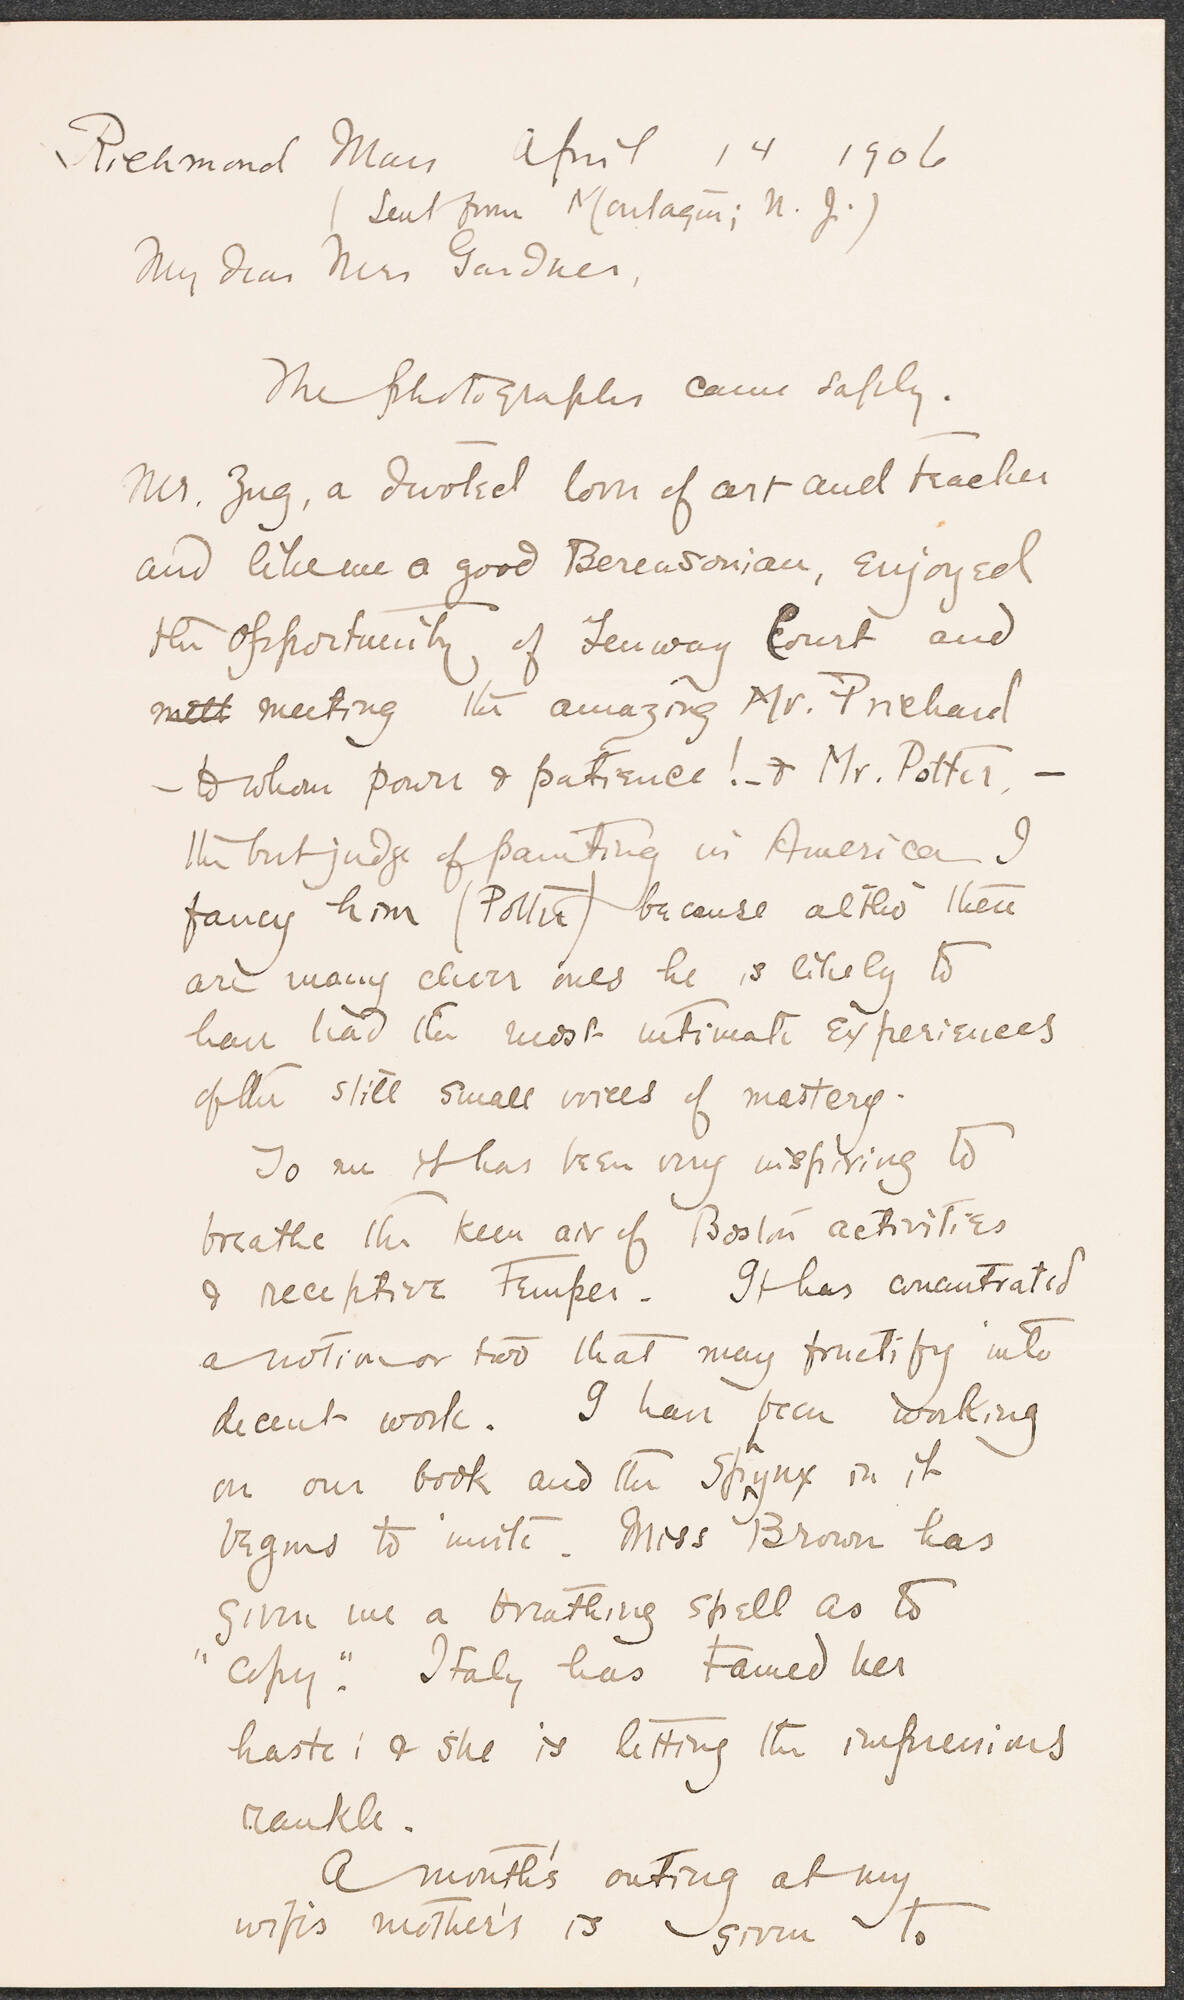 Richmond Mass April 14 1906
(Sent from Montague; N. J.)
My dear Mrs Gardner,
The photographs came safely.
Mr. Zug, a devoted lover of art and teacher
and like me a good Berensonian, enjoyed
the opportunity of Fenway Court and
mett meeting the amazing Mr. Prichard
– to whom power & patience! – & Mr. Potter, –
the best judge of painting in America I
fancy him (Potter) because altho' there
are many clever ones he is likely to
have had the most intimate experiences
of the still small voices of mastery.
To me it has been very inspiring to
breathe the keen air of Boston activities
& receptive temper. It has concentrated
a notion or two that may fructify into
decent work. I have been working
on our book and the Sphynx in it
begins to invite. Miss Brown has
given me a breathing spell as to
"copy". Italy has tamed her
haste; & she is letting the impressions
rankle.
A month's outing at my
wife's mother's is given to